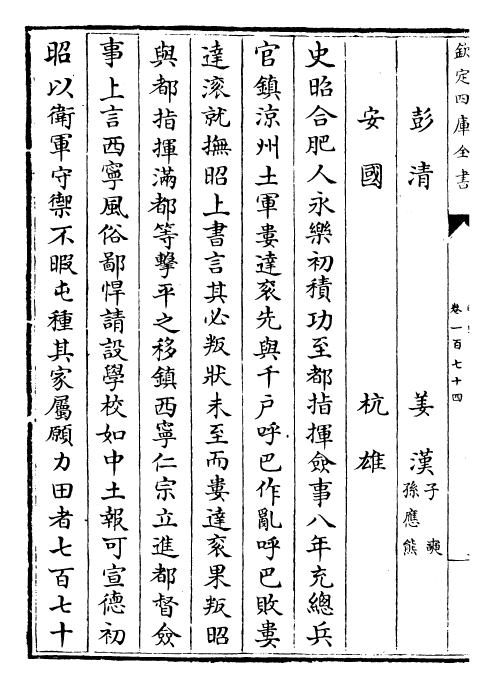 欽定四庫全書
卷一百七十四
彭清　姜漢子奭孫應熊
安國　杭雄
史昭合肥人永樂初積功至都指揮僉事八年充總兵
官鎮涼州土軍婁達衮先與千戶呼巴作亂呼巴敗婁
達滚就撫昭上書言其必叛狀未至而婁達衮果叛昭
與都指揮滿都等擊平之移鎮西寧仁宗立進都督僉
事上言西寧風俗鄙悍請設學校如中土報可宣德初
昭以衛軍守禦不暇屯種其家屬願力田者七百七十